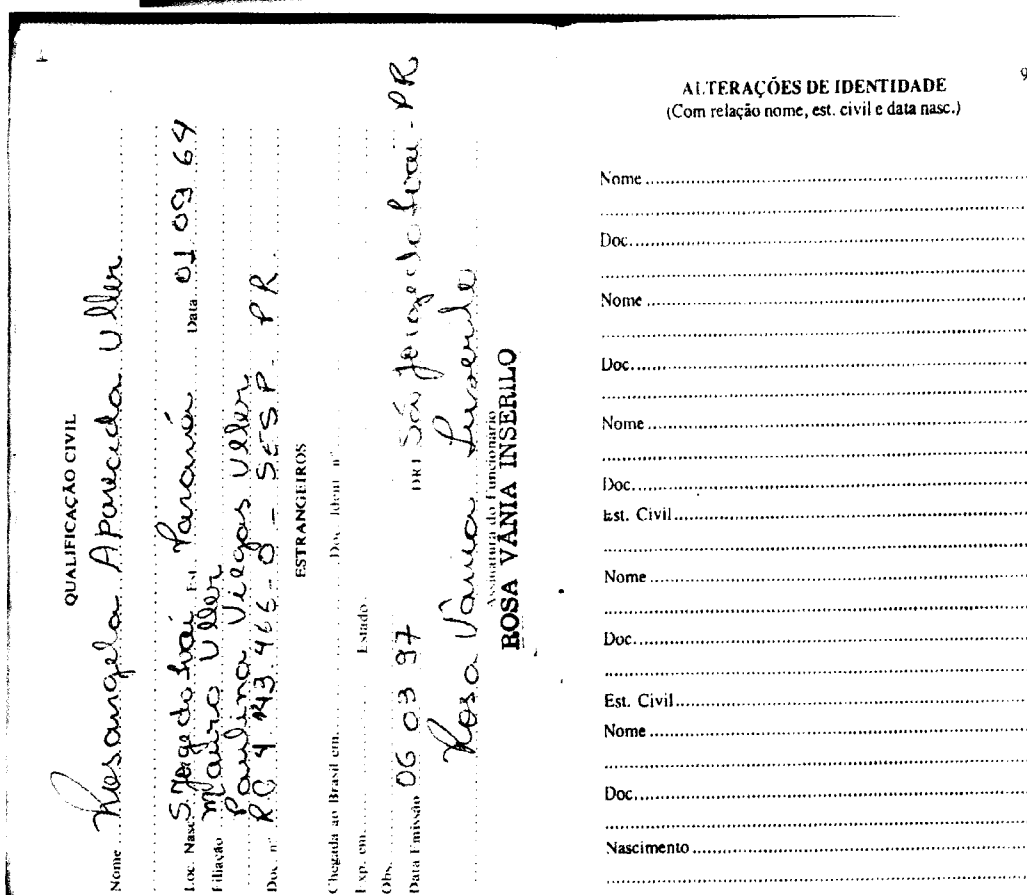 QUALIFICAÇÃO CIVIL
Nome Rosangela Aparecida Uller
Loc. Nasc. S. Jorge do Ivaí Est. Paraná Data 01 09 64
Filiação Mauro Uller
Paulina Viegas Uller
Doc. nº RG 4 143 466-0 - SESP PR
ESTRANGEIROS
Chegada ao Brasil em Doc. Ident nº
Exp. em Estado
Obs.
Data Emissão 06 03 97 DRT São Jorge do Ivaí - PR
Rosa Vania Inserilo
Assinatura do Funcionário
ROSA VÂNIA INSERILO
9
ALTERAÇÕES DE IDENTIDADE
(Com relação nome, est. civil e data nasc.)
Nome
Doc.
Nome
Doc.
Nome
Doc.
Est. Civil
Nome
Doc.
Est. Civil
Nome
Doc.
Nascimento